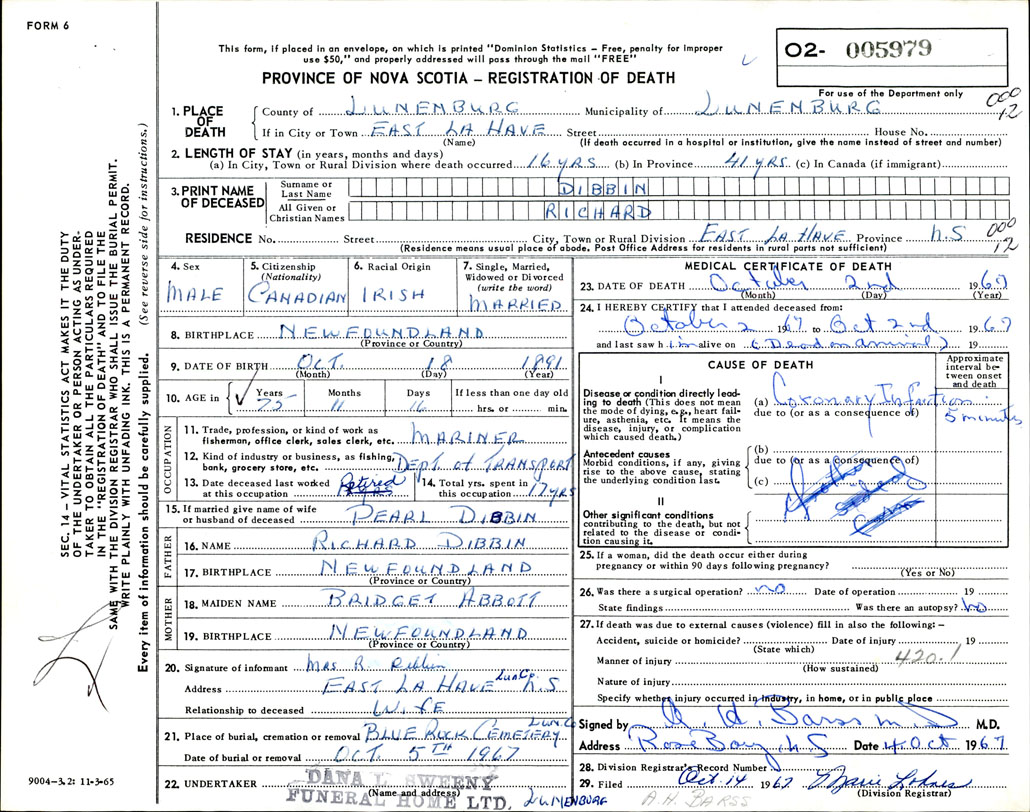 FORM 6
This form, if placed in an envelope, on which is printed "Dominion Statistics – Free, penalty for improper
use $50," and properly addressed will pass through the mail "FREE"
PROVINCE OF NOVA SCOTIA – REGISTRATION OF DEATH
O2- 005979
For use of the Department only
000
12
1. PLACE OF DEATH
County of LUNENBURG Municipality of LUNENBURG
If in City or Town EAST LA HAVE Street House No.
(Name) (If death occurred in a hospital or institution, give the name instead of street and number)
2. LENGTH OF STAY (in years, months and days)
(a) In City, Town or Rural Division where death occurred 16 YRS (b) In Province 41 YRS. (c) In Canada (if immigrant)
3. PRINT NAME OF DECEASED
Surname or Last Name DIBBIN
All Given or Christian Names RICHARD
RESIDENCE No. Street City, Town or Rural Division EAST LA HAVE Province N.S
000
12
(Residence means usual place of abode. Post Office Address for residents in rural parts not sufficient)
4. Sex MALE
5. Citizenship (Nationality) CANADIAN
6. Racial Origin IRISH
7. Single, Married, Widowed or Divorced (write the word) MARRIED
8. BIRTHPLACE NEWFOUNDLAND
(Province or Country)
9. DATE OF BIRTH OCT. 18 1891
(Month) (Day) (Year)
10. AGE in Years 75 Months 11 Days 16 If less than one day old hrs. or min.
OCCUPATION
11. Trade, profession, or kind of work as fisherman, office clerk, sales clerk, etc. MARINER
12. Kind of industry or business, as fishing, bank, grocery store, etc. DEPT. of TRANSPORT
13. Date deceased last worked at this occupation Retired
14. Total yrs. spent in this occupation 17 YRS
15. If married give name of wife or husband of deceased PEARL DIBBIN
FATHER
16. NAME RICHARD DIBBIN
17. BIRTHPLACE NEWFOUNDLAND
(Province or Country)
MOTHER
18. MAIDEN NAME BRIDGET ABBOTT
19. BIRTHPLACE NEWFOUNDLAND
(Province or Country)
20. Signature of informant Mrs R. Dibbin
Address EAST LA HAVE Lun Co. N.S
Relationship to deceased Wife
21. Place of burial, cremation or removal BLUE ROCK CEMETERY LUN. Co
Date of burial or removal OCT. 5TH 1967
22. UNDERTAKER DANA L. SWEENY
(Name and address)
FUNERAL HOME LTD. LUNENBURG
MEDICAL CERTIFICATE OF DEATH
23. DATE OF DEATH October 2nd 1967
(Month) (Day) (Year)
24. I HEREBY CERTIFY that I attended deceased from:
October 2 1967 to Oct 2nd 1967
and last saw him alive on (Dead on arrival) 19
CAUSE OF DEATH
Approximate interval between onset and death
I
Disease or condition directly leading to death (This does not mean the mode of dying, e.g., heart failure, asthenia, etc. It means the disease, injury, or complication which caused death.)
(a) Coronary Infarction 5 minutes
due to (or as a consequence of)
Antecedent causes
Morbid conditions, if any, giving rise to the above cause, stating the underlying condition last.
(b)
due to (or as a consequence of)
(c)
II
Other significant conditions
contributing to the death, but not related to the disease or condition causing it.
25. If a woman, did the death occur either during
pregnancy or within 90 days following pregnancy?
(Yes or No)
26. Was there a surgical operation? no Date of operation 19
State findings Was there an autopsy? No
27. If death was due to external causes (violence) fill in also the following: –
Accident, suicide or homicide? Date of injury 19
(State which)
420.1
Manner of injury
(How sustained)
Nature of injury
Specify whether injury occurred in industry, in home, or in public place
Signed by A. H. Barss M D M.D.
Address Rose Bay, N S Date 4 Oct 1967
28. Division Registrar's Record Number
29. Filed Oct. 14 1967
(Division Registrar)
A.H. BARSS
SEC. 14 – VITAL STATISTICS ACT MAKES IT THE DUTY
OF THE UNDERTAKER OR PERSON ACTING AS UNDER-
TAKER TO OBTAIN ALL THE PARTICULARS REQUIRED
IN THE "REGISTRATION OF DEATH" AND TO FILE THE
SAME WITH THE DIVISION REGISTRAR WHO SHALL ISSUE THE BURIAL PERMIT.
WRITE PLAINLY WITH UNFADING INK. THIS IS A PERMANENT RECORD.
Every item of information should be carefully supplied. (See reverse side for instructions.)
9004-3.2: 11-3-65